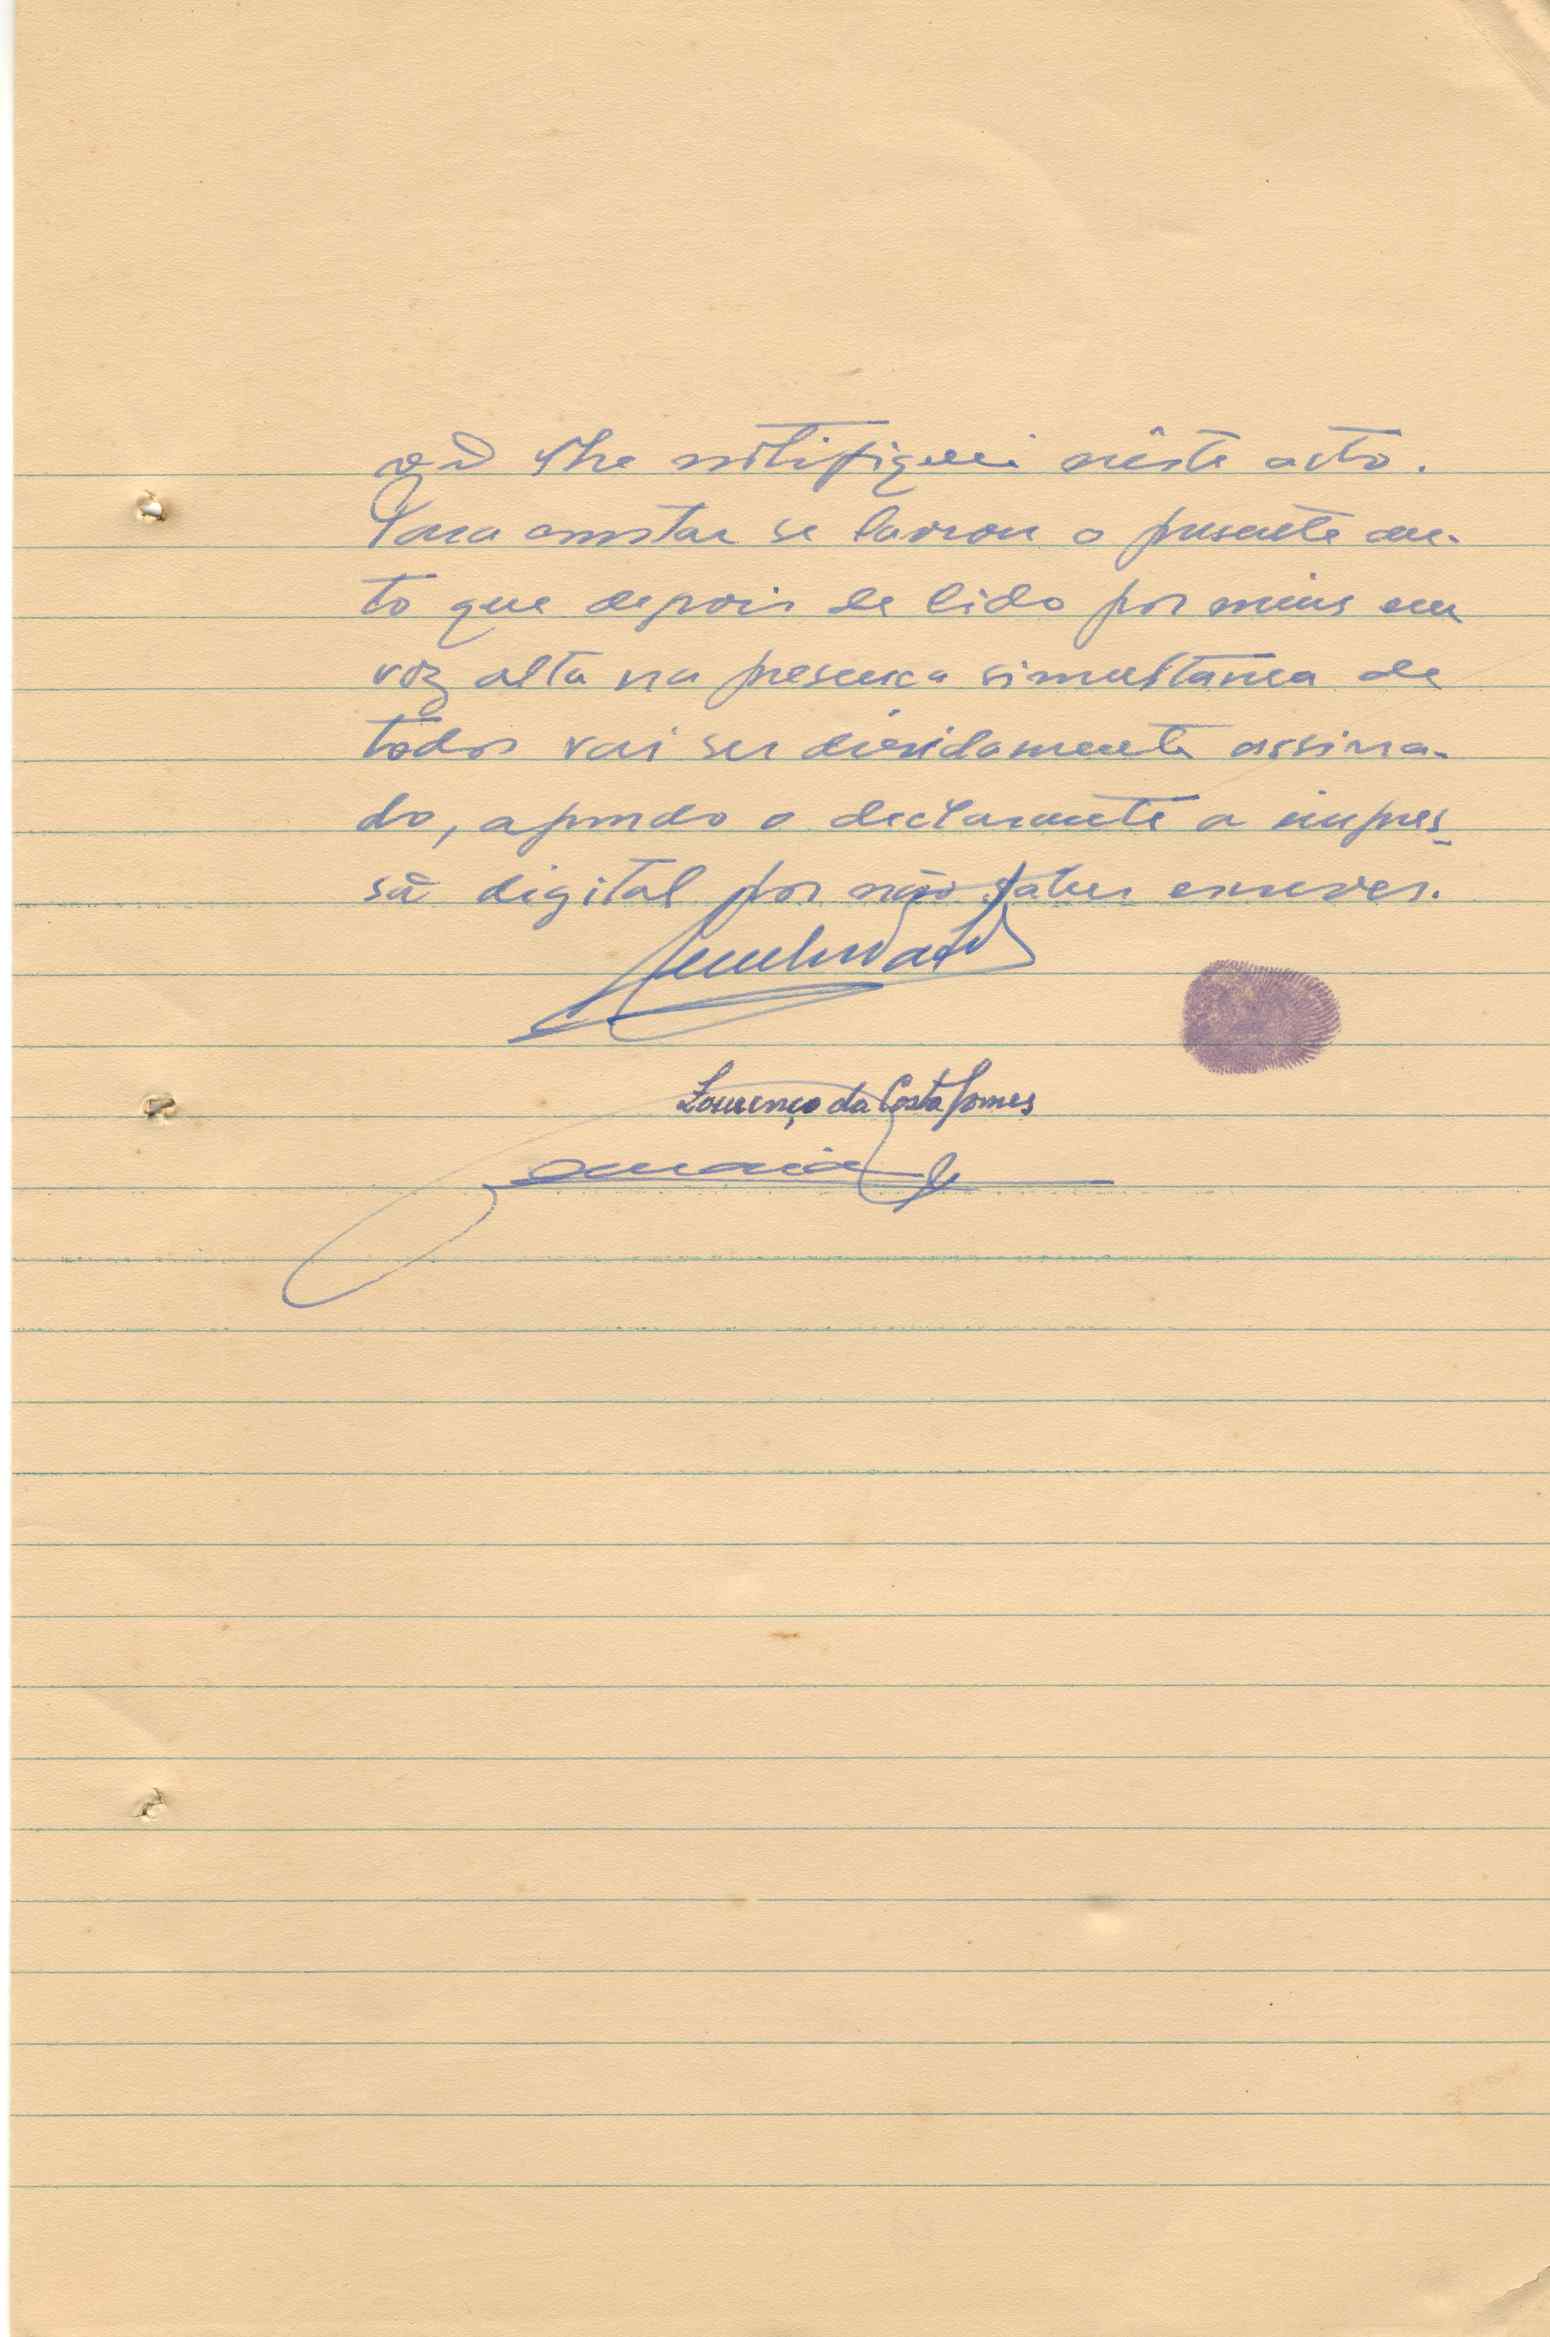 lhe notifiquei nêste acto.
Para constar se lavrou o presente au-
to que depois de lido por mim em
voz alta na presença simultanea de
todos vai ser dividamente assina-
do, apondo o declarante a impres-
sã digital por não saber escrever.
Lourenço da Costa Gomes